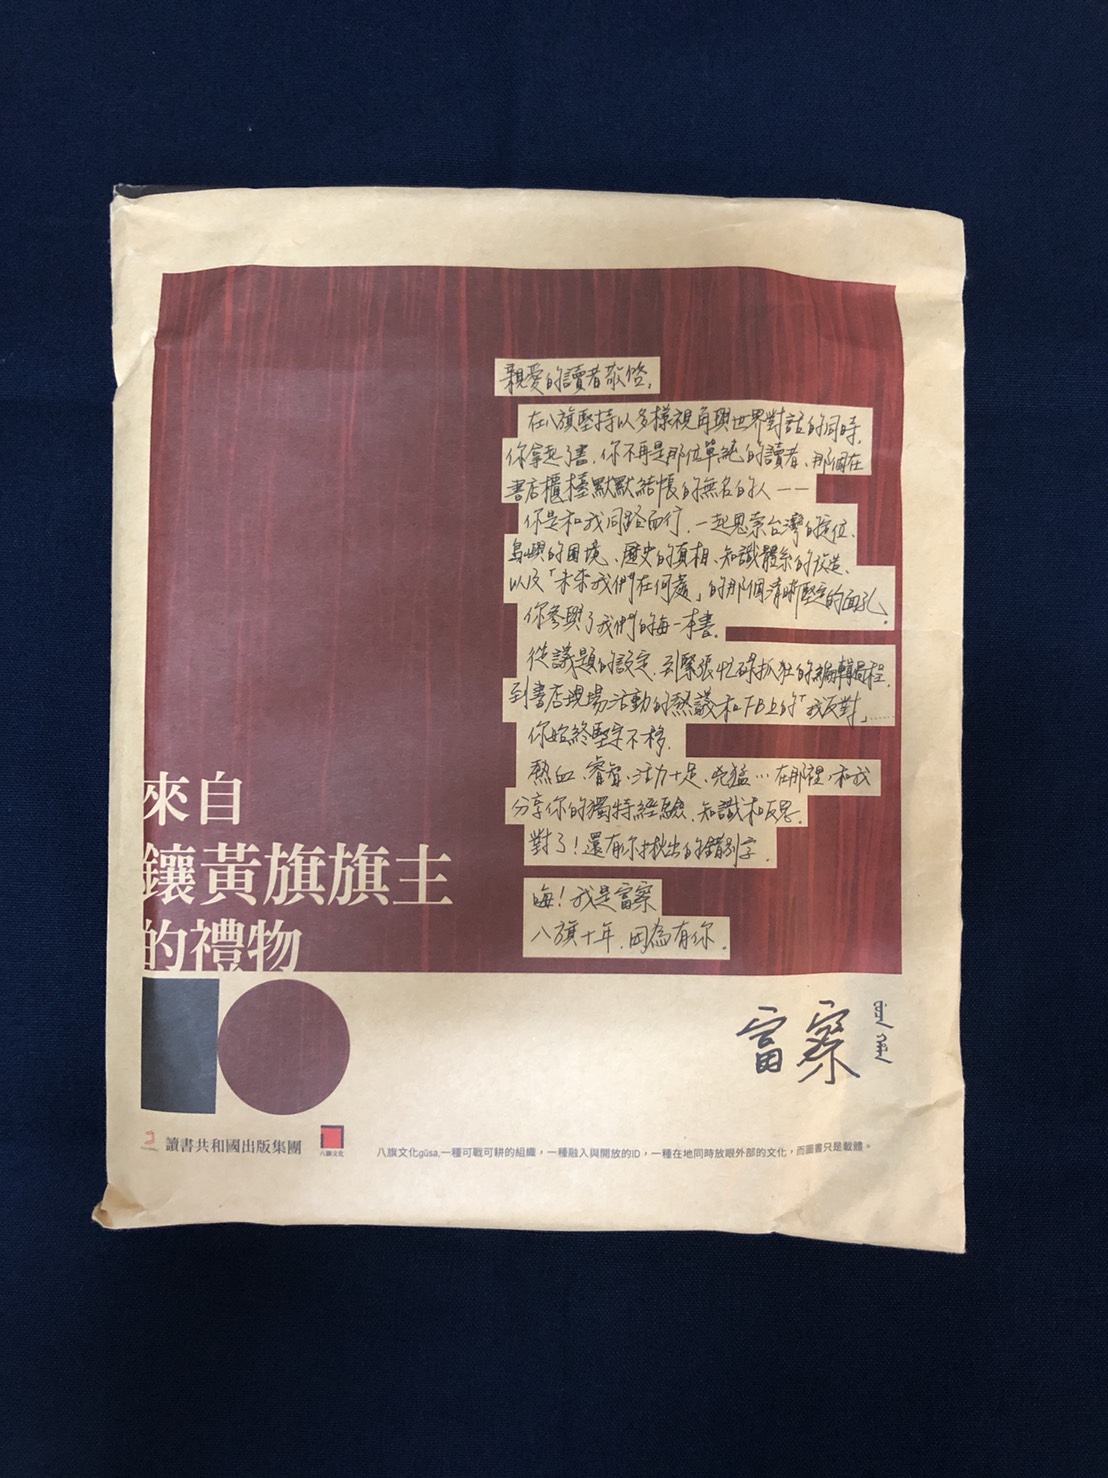 親愛的讀者敬啓,
在八旗堅持以多樣視角與世界對話的同時,
你拿起了書,你不再是那位單純的讀者、那個在
書店櫃檯默默結帳的無名的人——
你是和我同路而行,一起思索台灣的定位、
島嶼的困境、歷史的真相、知識體系的改造、
以及「未來我們在何處」的那個清晰堅定的面孔。
你參與了我們的每一本書。
從議題的設定,到緊張忙碌抓狂的編輯過程,
到書店現場活動的熱議和FB上的「我反對」……
你始終堅定不移。
熱血、睿智、活力十足、兇猛…在那裡,和我
分享你的獨特經驗、知識和反思。
對了!還有你挑出的錯別字。
嗨!我是富察
八旗十年,因為有你。
來自
鑲黃旗旗主
的禮物
富察
讀書共和國出版集團
八旗文化
八旗文化gūsa,一種可戰可耕的組織,一種融入與開放的ID,一種在地同時放眼外部的文化,而圖書只是載體。